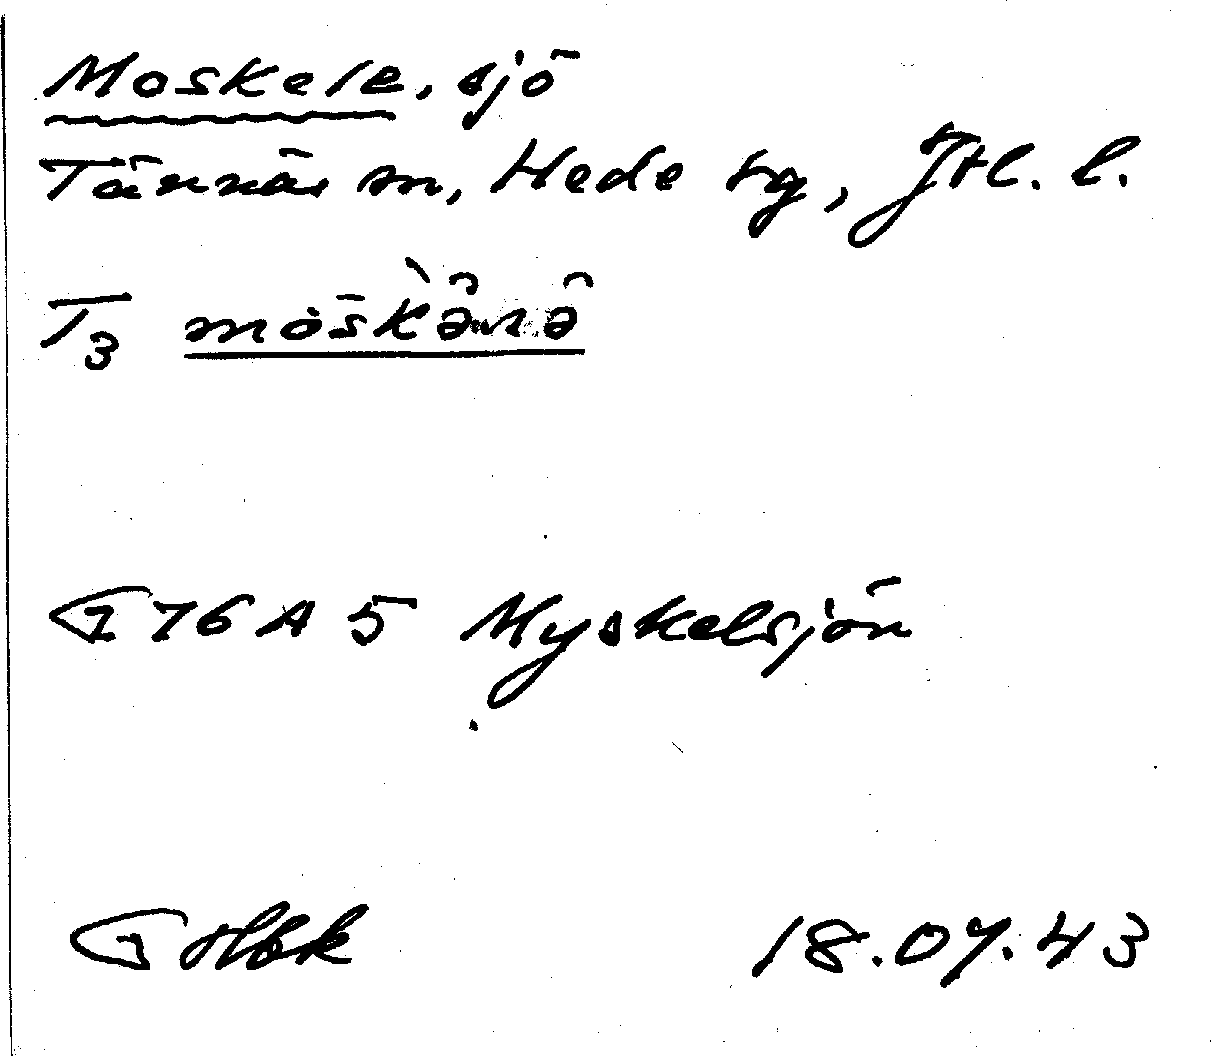 Moskele, sjö
Tännäs sn, Hede tg, Jtl. l.
T3
G 76A 5 Myskelsjön
G Hbk 18.07.43